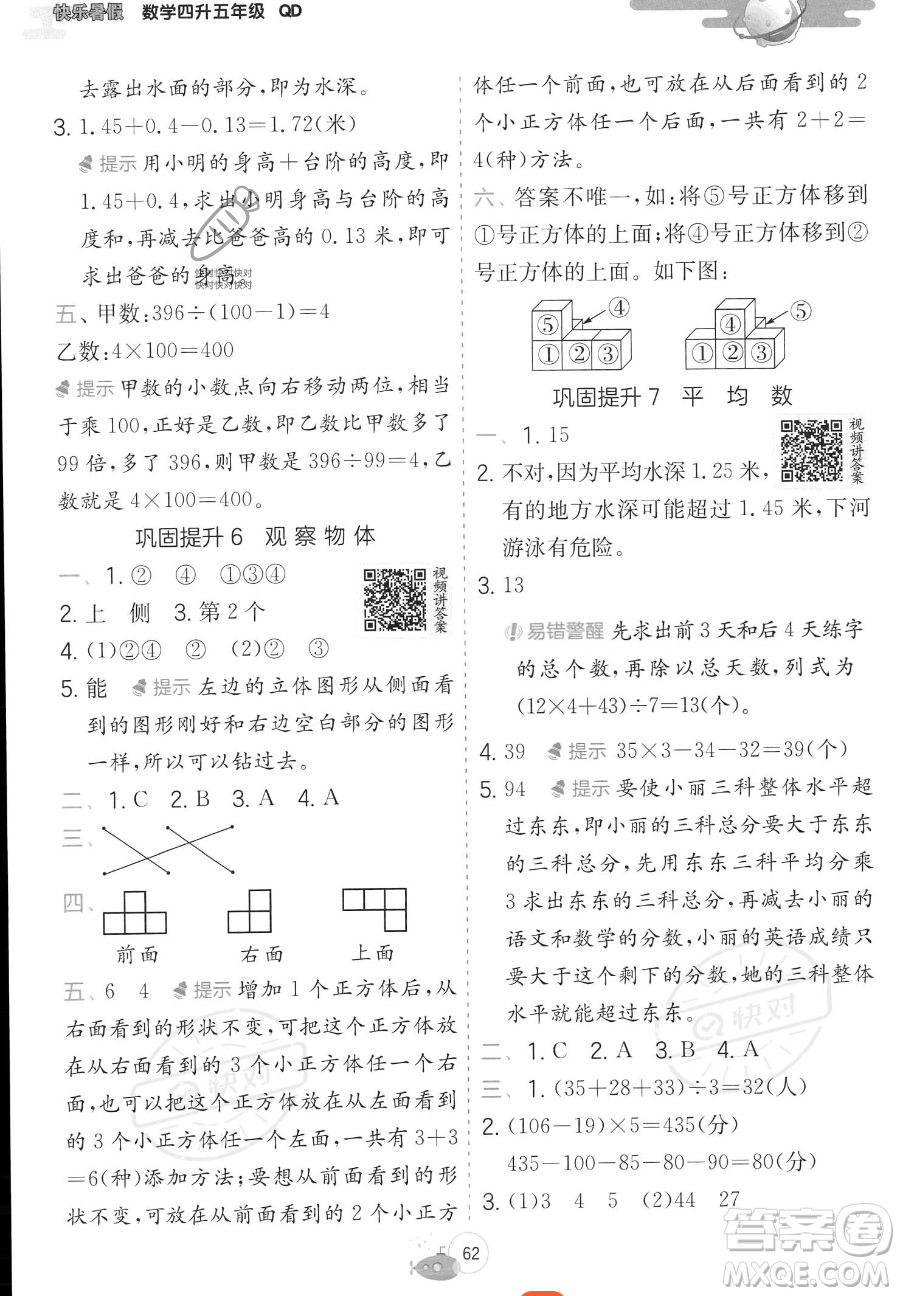 快乐暑假 数学四升五年级 QD
去露出水面的部分,即为水深。
3. 1.45+0.4-0.13=1.72(米)
提示 用小明的身高+台阶的高度,即
1.45+0.4,求出小明身高与台阶的高
度和,再减去比爸爸高的 0.13 米,即可
求出爸爸的身高。
快对快对快对
快对快对快对
五、甲数:396÷(100-1)=4
乙数:4×100=400
提示 甲数的小数点向右移动两位,相当
于乘 100,正好是乙数,即乙数比甲数多了
99 倍,多了 396,则甲数是 396÷99=4,乙
数就是 4×100=400。
巩固提升 6 观察物体
一、1. ② ④ ①③④
视频讲答案
2. 上 侧 3. 第 2 个
4. (1)②④ ②④ (2)② ③
5. 能 提示 左边的立体图形从侧面看
到的图形刚好和右边空白部分的图形
一样,所以可以钻过去。
二、1. C 2. B 3. A 4. A
三、
四、
前面 右面 上面
五、6 4 提示 增加 1 个正方体后,从
右面看到的形状不变,可把正方体放
在从右面看到的 3 个小正方体任一个
右面,也可将正方体放在从左面看到
的 3 个小正方体任一个左面,一共有 3+3
=6(种)添加方法;要从前面看到的形
状不变,可放在从前面看到的 2 个小正方
体任一个前面,也可放在从后面看到的 2
个小正方体任一个后面,一共有 2+2=
4(种)方法。
六、答案不唯一,如:将⑤号正方体移到
①号正方体的上面;将④号正方体移到②
号正方体的上面。如下图:
⑤ ④ ① ② ③
④ ⑤ ① ② ③
巩固提升 7 平均数
一、1. 15
视频讲答案
2. 不对,因为平均水深 1.25 米,不代表所
有的地方水深可能超过 1.45 米,下河
游泳有危险。
3. 13
易错警醒 先求出前 3 天和后 4 天练字
的总个数,再除以总天数,列式为
(12×4+43)÷7=13(个)。
4. 39 提示 35×3-34-32=39(个)
5. 94 提示 要使小丽三科整体水平超
过东东,即小丽的三科总分要大于东东
的三科总分,先用东东的三科平均分乘
3 求出东东的三科总分,再减去小丽的
语文和数学的分数,小丽的英语成绩只
要大于这个剩下的分数,她的三科整体
水平就大于东东。
二、1. C 2. A 3. A 4. A
三、1. (35+28+33)÷3=32(人)
2. (106-19)×5=435(分)
435-100-85-80-90=80(分)
3. (1)3 4 5 (2)44 27
快对
快对
62
答案圈
MXQE.COM